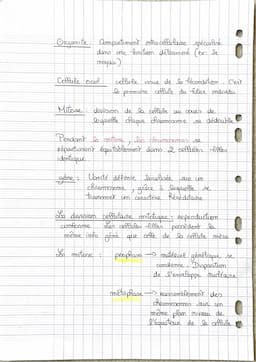 Organite : Compartiment intracellulaire spécialisé
dans une fonction déterminée (ex : le
noyau)
Cellule oeuf : cellule issue de la fécondation. C'est
la première cellule du futur individu
Mitose : division de la cellule au cours de
laquelle chaque chromosome se dédouble
Pendant la mitose, les chromosomes se
répartissent équitablement dans 2 cellules filles
identiques.
gène : Unité définie localisée sur un
chromosome, grâce à laquelle se
transmet un caractère héréditaire
La division cellulaire mitotique : reproduction
conforme. Les cellules filles possèdent la
même info géné que celle de la cellule mère
La mitose : prophase → matériel génétique se
condense. Disparition
de l'enveloppe nucléaire.
métaphase → rassemblement des
chromosomes sur un
même plan niveau de
l'équateur de la cellule